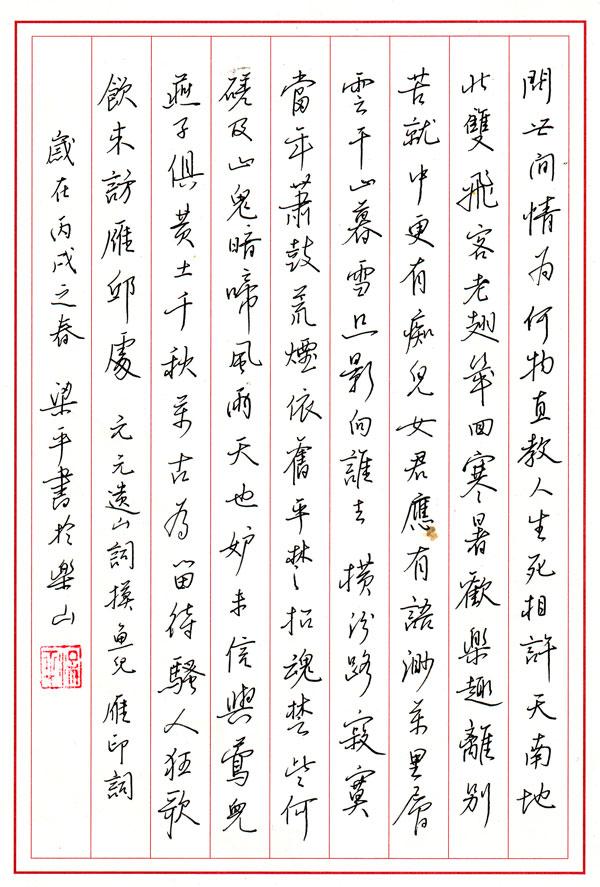 問世间情為何物直教人生死相許天南地
北雙飛客老翅幾回寒暑歡樂趣離別
苦就中更有痴兒女君應有語渺萬里層
雲千山暮雪只影向誰去 橫汾路寂寞
當年蕭鼓荒煙依舊平楚招魂楚些何
磋及山鬼暗啼風雨天也妒未信與鶯兒
燕子俱黃土千秋萬古為留待騷人狂歌
飲來訪雁邱處 元元遺山詞摸魚兒 雁邱詞
歲在丙戌之春 梁平書於樂山